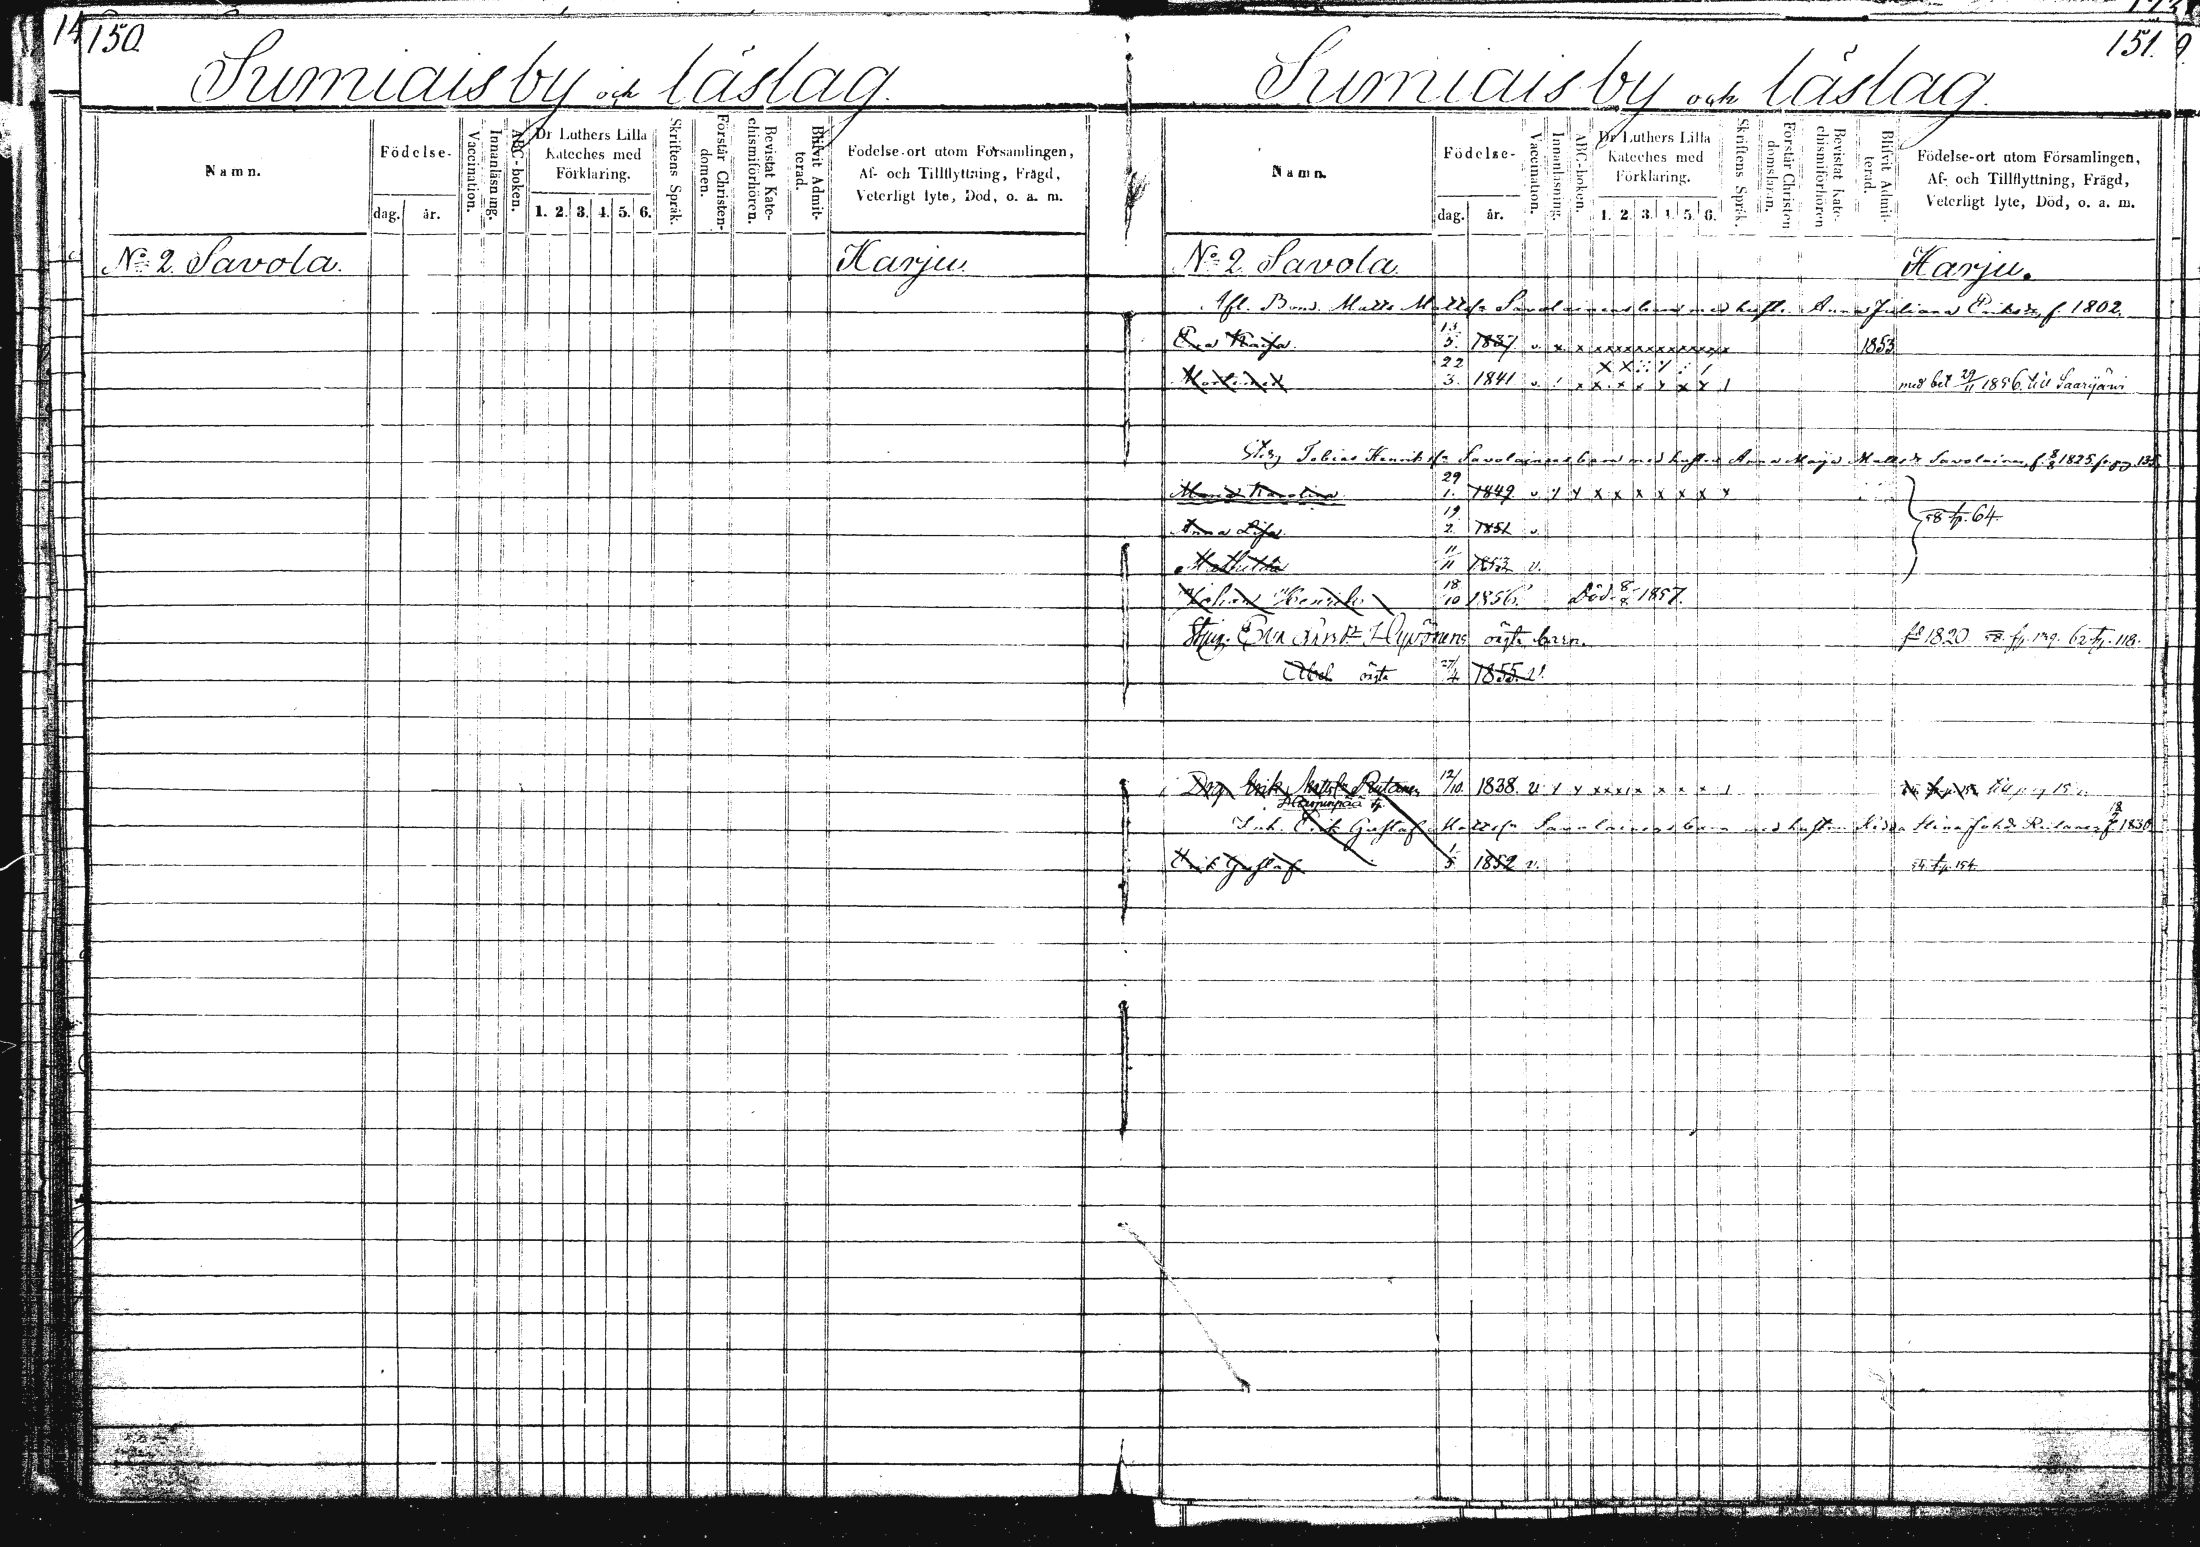 150.
Sumiais by och läslag.
Namn.
Födelse-
dag. år.
Vaccination.
Innanläsning.
ABC-boken.
Dr Luthers Lilla
Kateches med
Förklaring.
1. 2. 3. 4. 5. 6.
Skriftens Språk.
Förstår Christen-
domen.
Bevistat Kate-
chismiförhören.
Blifvit Admit-
terad.
Födelse-ort utom Församlingen,
Af- och Tillflyttning, Frägd,
Veterligt lyte, Död, o. a. m.
No 2. Savola. Harju.
151.
Sumiais by och läslag.
Namn.
Födelse-
dag. år.
Vaccination.
Innanläsning.
ABC-boken.
Dr Luthers Lilla
Kateches med
Förklaring.
1. 2. 3. 4. 5. 6.
Skriftens Språk.
Förstår Christen-
domslären.
Bevistat Kate-
chismiförhören
Blifvit Admit-
terad.
Födelse-ort utom Församlingen,
Af- och Tillflyttning, Frägd,
Veterligt lyte, Död, o. a. m.
No 2. Savola. Harju.
Afl. Bond. Matts Mattsn Savolainens barn med hustr. Anna Juliana Eriksdr, f. 1802.
Eva Kaisa. 13/5. 1837 v. x x x x x x x x x x x x x 1853
22/3. 1841 v. med bet 29/11 1856. till Saarijärvi
Tobias Henriksn Savolainens barn med hustrun Anna Maja Mattsdr Savolainen, f. 8/8 1825
Maria Karolina 29/1. 1849 v x x x x x x x x x
Anna Lisa 19/2. 1851 v. 58 fp. 64.
Mathilda 11/11 1853 v.
Johan Henrik 18/10 1856. Död. 8/8 1857.
Eva Hyvönens oägta barn. fd 1820 58. fp. 62 fp. 118.
Abel oägta 27/4 1855. v.
Drg Erik Mattsn Rutanen 12/10. 1838. v
Erik Gustaf Mattsn Savolainens barn med hustrun Stina Johdr Rutanen f 1830
Erik Gustaf 1/5. 1852 v. 54 fp. 154